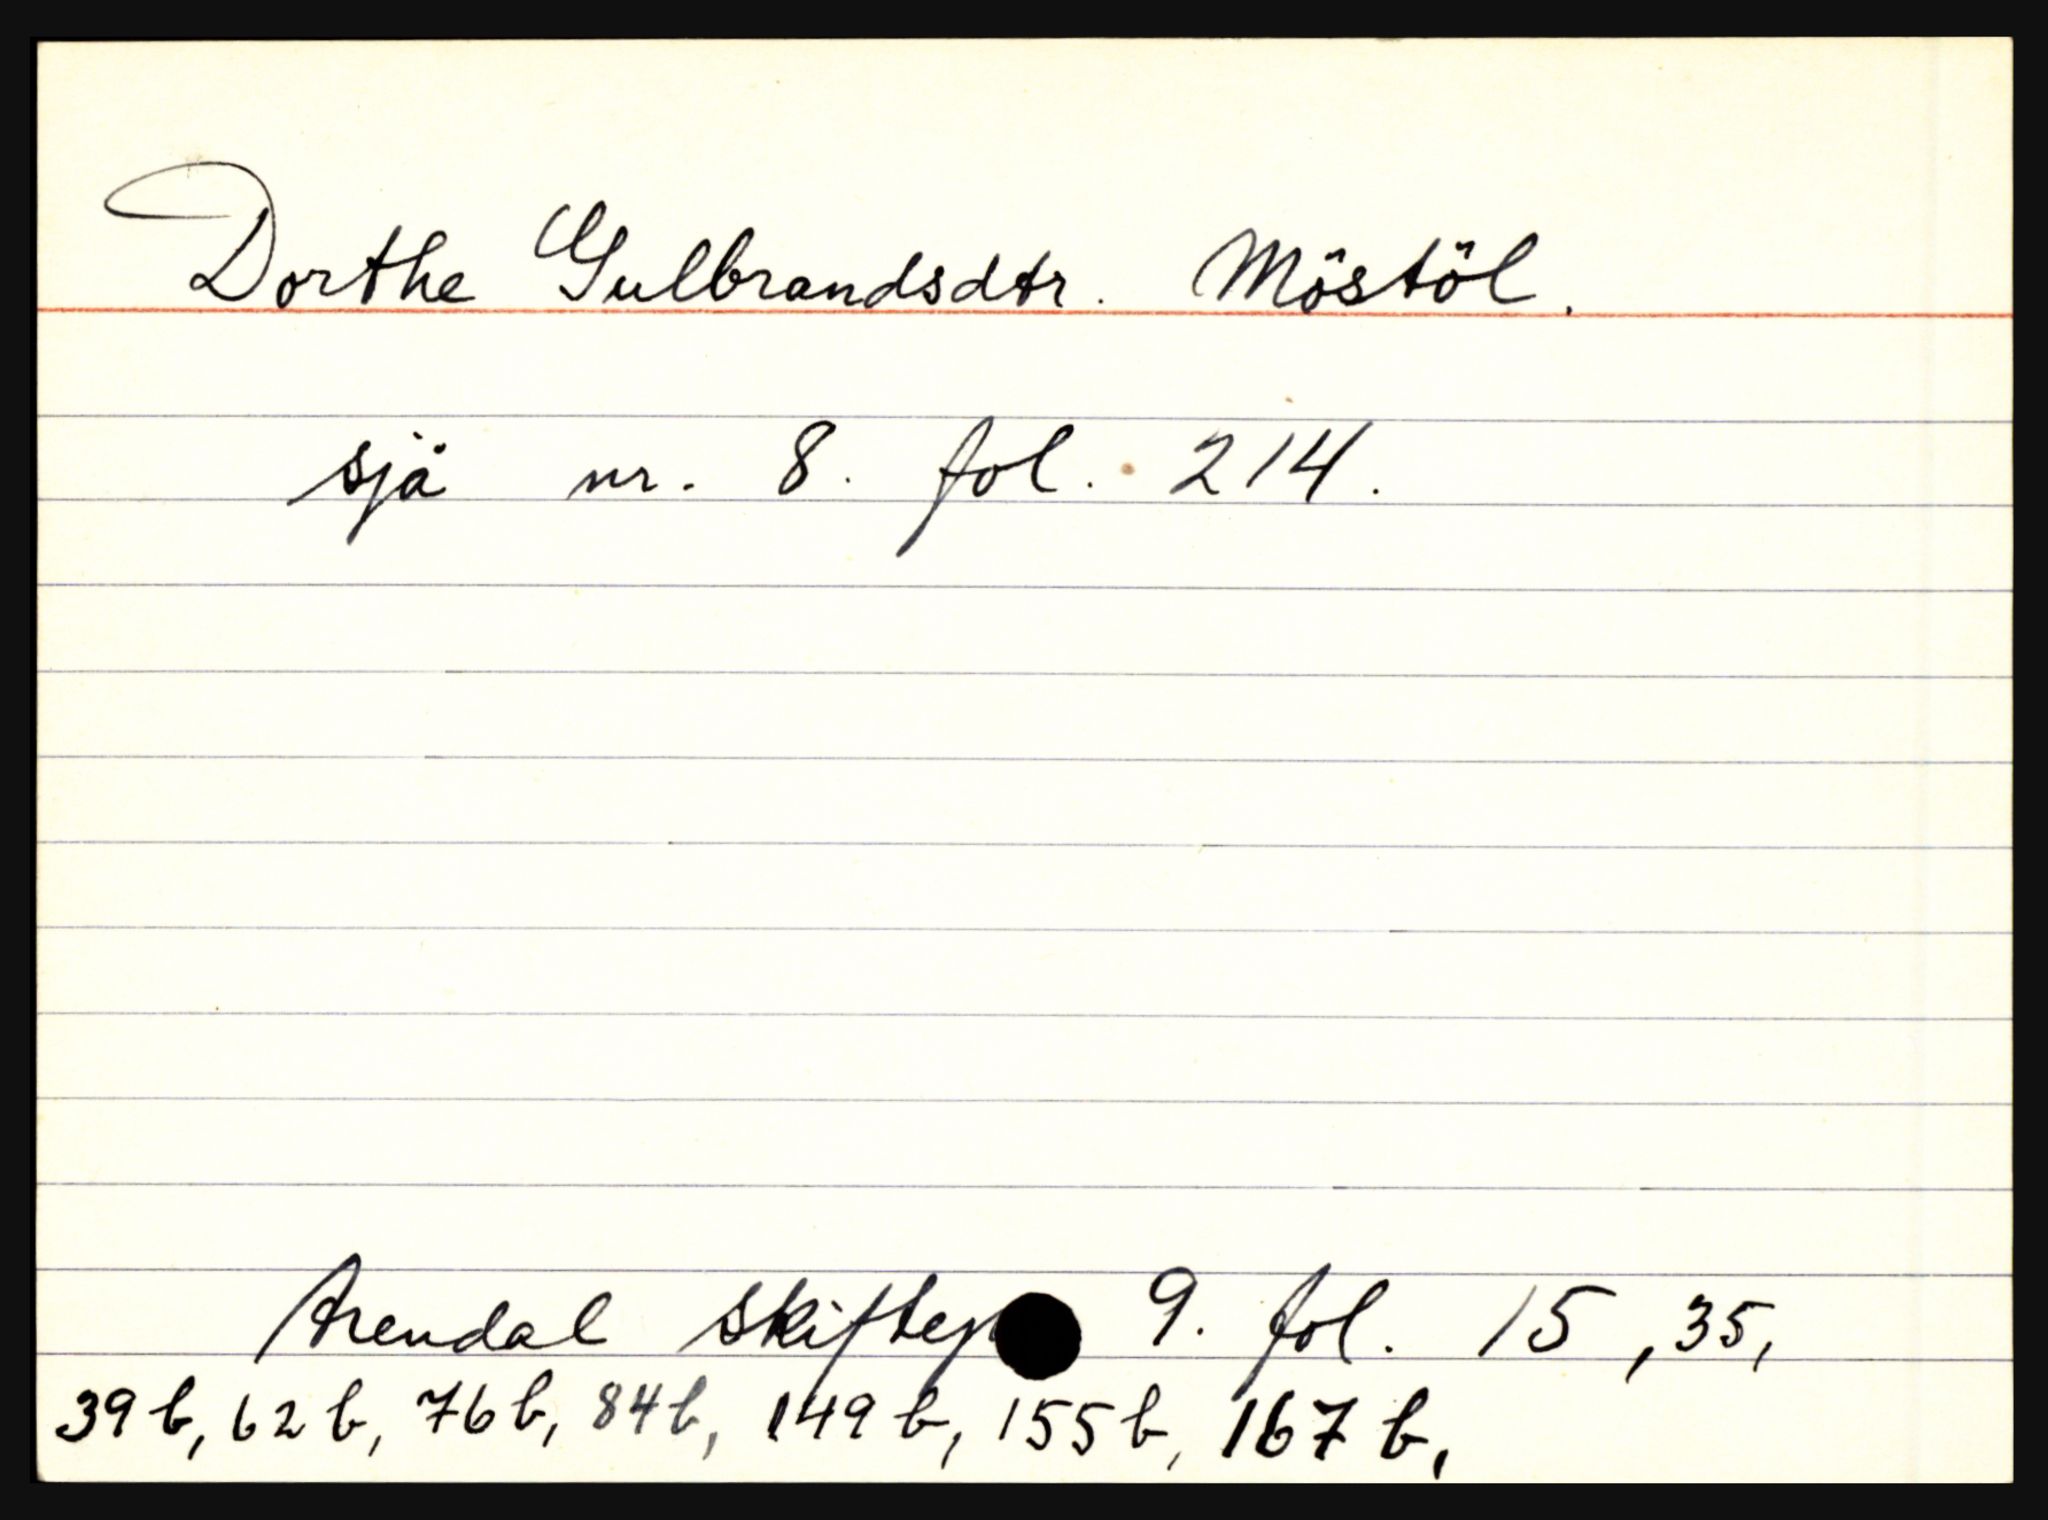 Dorthe Gulbrandsdtr. Möstöl.
sjå nr. 8. fol. 214.
Arendal 9. fol. 15, 35,
39 b, 62 b, 76 b, 84 b, 149 b, 155 b, 167 b,